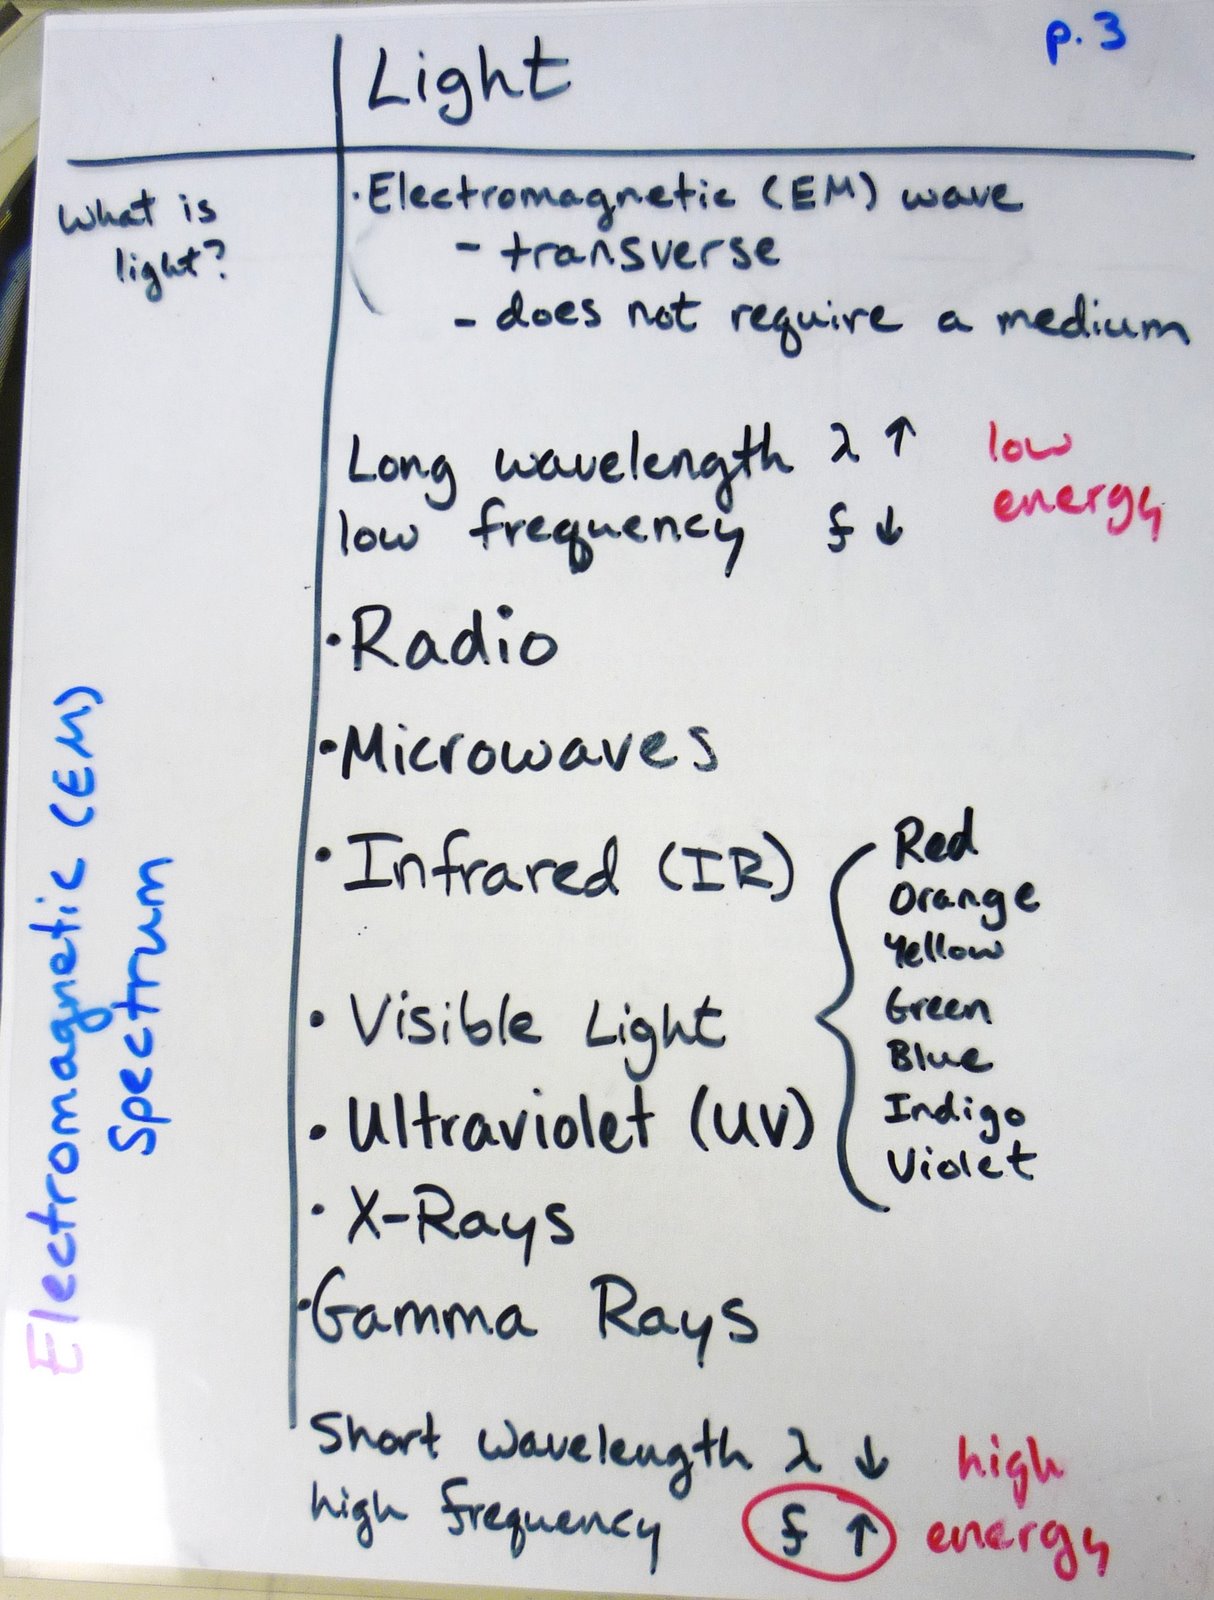 p. 3
Light
What is
light?
· Electromagnetic (EM) wave
- transverse
- does not require a medium
Long wavelength λ ↑ low
low frequency f ↓ energy
· Radio
· Microwaves
· Infrared (IR)
· Visible Light
Red
Orange
Yellow
Green
Blue
Indigo
Violet
· Ultraviolet (UV)
· X-Rays
· Gamma Rays
Electromagnetic (EM)
Spectrum
Short wavelength λ ↓ high
high frequency f ↑ energy